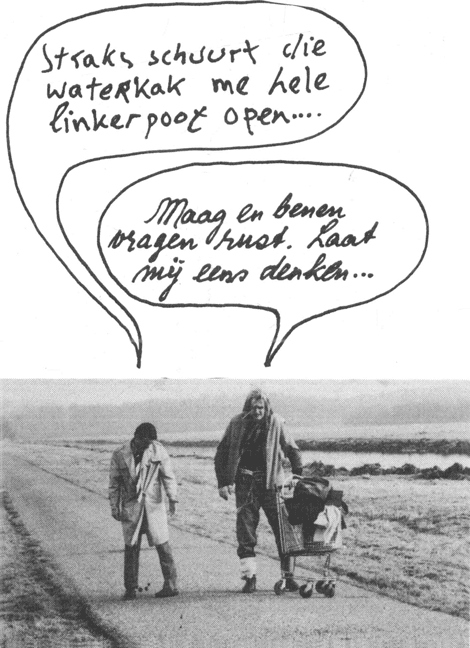 Straks schuurt die
waterkak me hele
linkerpoot open....
Maag en benen
vragen rust. Laat
mij eens denken...